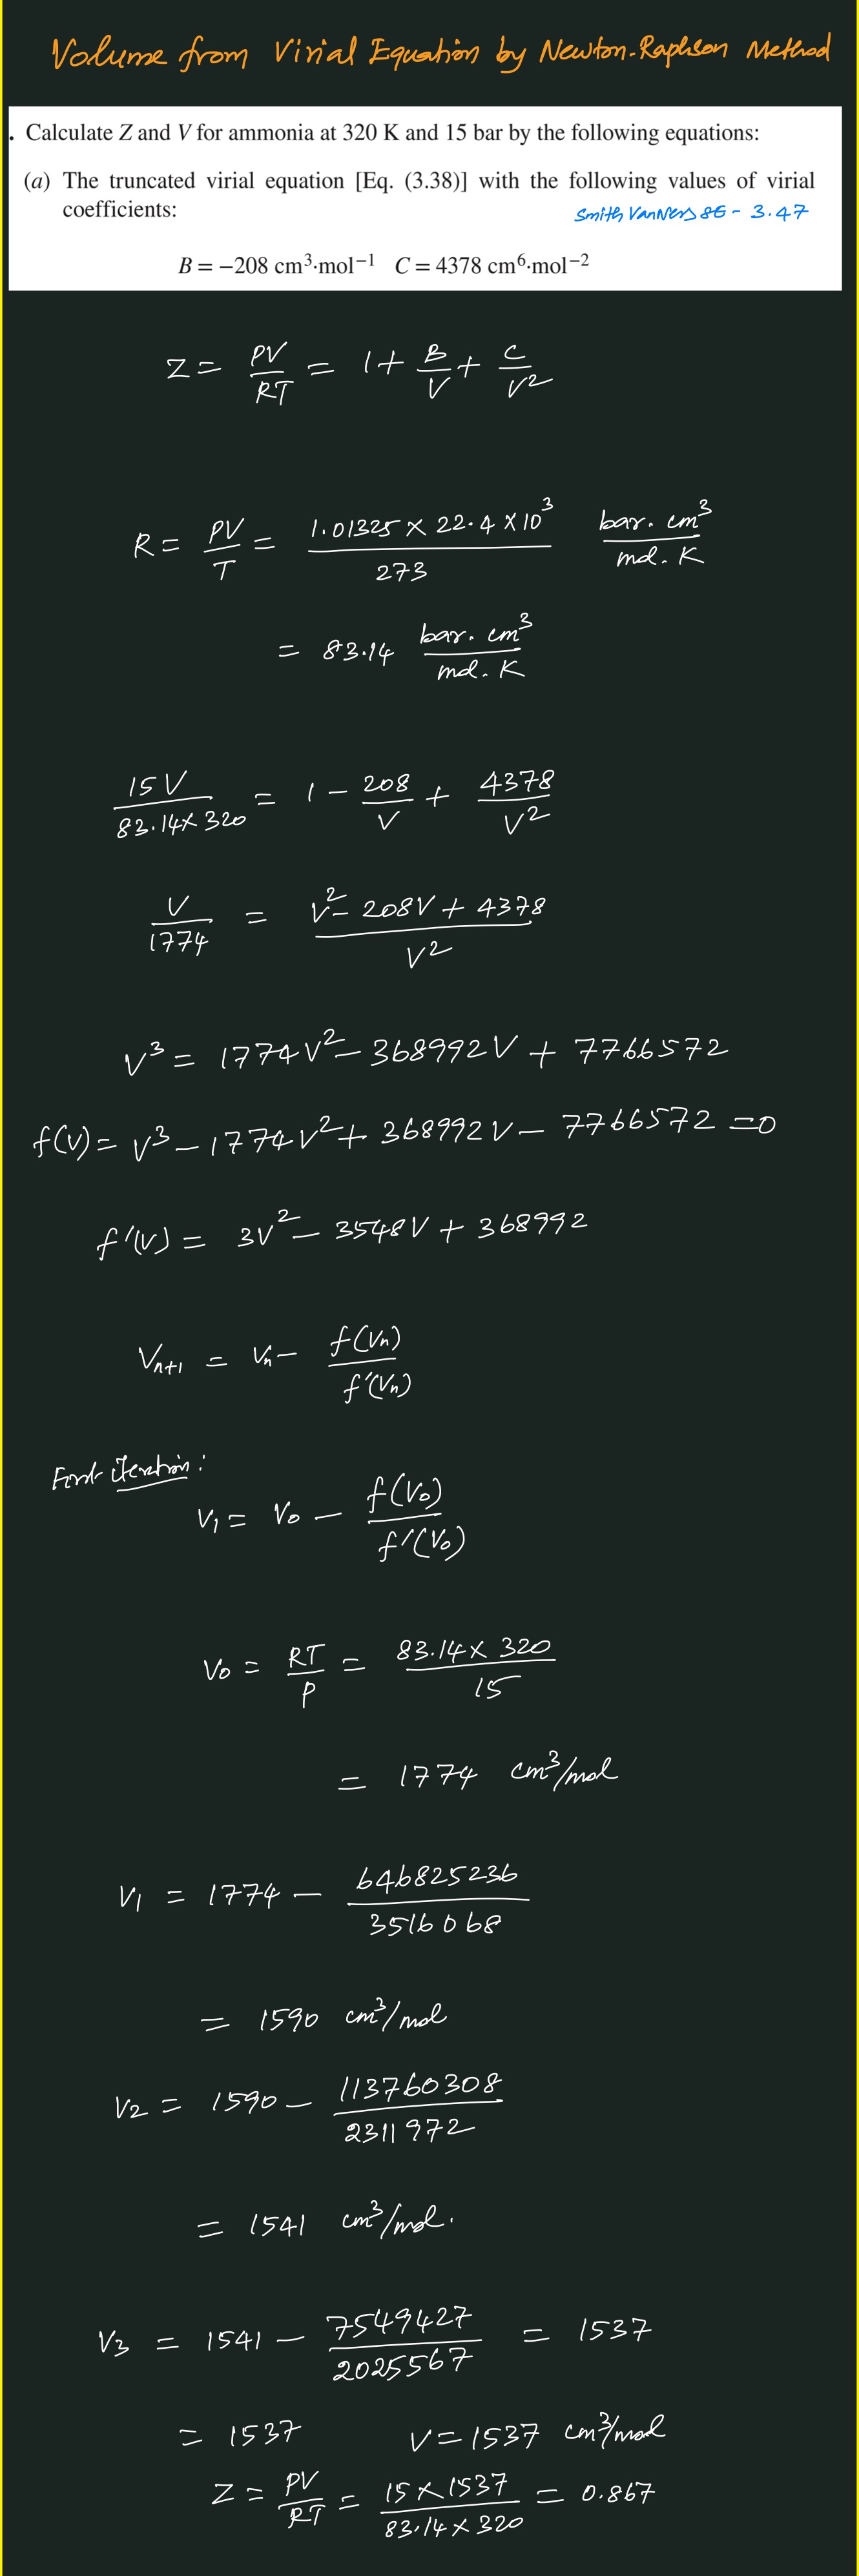 Volume from Virial Equation by Newton-Raphson Method
. Calculate Z and V for ammonia at 320 K and 15 bar by the following equations:
(a) The truncated virial equation [Eq. (3.38)] with the following values of virial
coefficients:
Smith VanNess 8E - 3.47
B = −208 cm³·mol⁻¹ C = 4378 cm⁶·mol⁻²
Z = PV/RT = 1 + B/V + C/V²
R = PV/T = (1.01325 × 22.4 × 10³)/273 bar. cm³/mol. K
= 83.14 bar. cm³/mol. K
15V/(83.14 × 320) = 1 − 208/V + 4378/V²
V/1774 = (V² − 208V + 4378)/V²
V³ = 1774V² − 368992V + 7766572
f(V) = V³ − 1774V² + 368992V − 7766572 = 0
f'(V) = 3V² − 3548V + 368992
Vn+1 = Vn − f(Vn)/f'(Vn)
First iteration:
V₁ = V₀ − f(V₀)/f'(V₀)
V₀ = RT/P = (83.14 × 320)/15
= 1774 cm³/mol
V₁ = 1774 − 646825236/3516068
= 1590 cm³/mol
V₂ = 1590 − 113760308/2311972
= 1541 cm³/mol.
V₃ = 1541 − 7549427/2025567 = 1537
= 1537 V = 1537 cm³/mol
Z = PV/RT = (15 × 1537)/(83.14 × 320) = 0.867